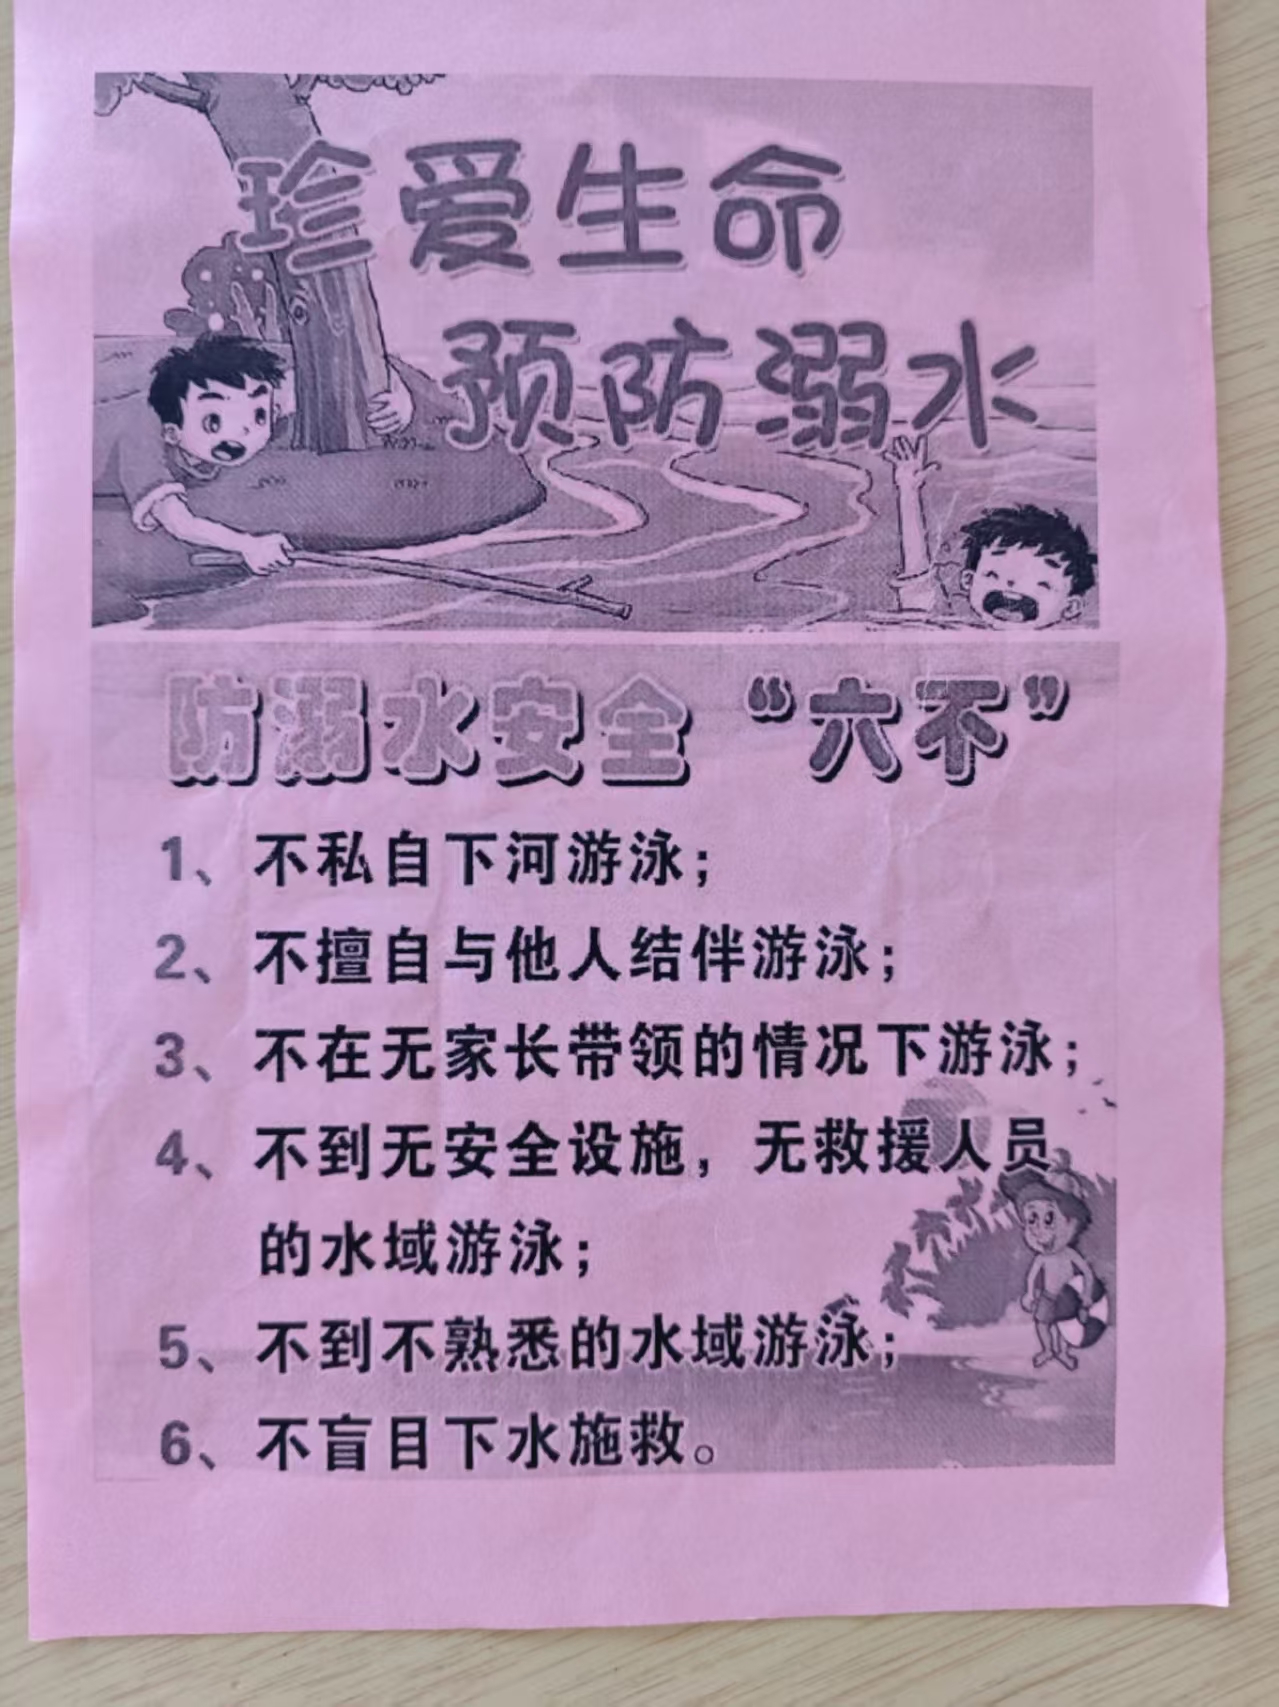 珍爱生命
预防溺水
防溺水安全“六不”
1、不私自下河游泳；
2、不擅自与他人结伴游泳；
3、不在无家长带领的情况下游泳；
4、不到无安全设施，无救援人员
的水域游泳；
5、不到不熟悉的水域游泳；
6、不盲目下水施救。